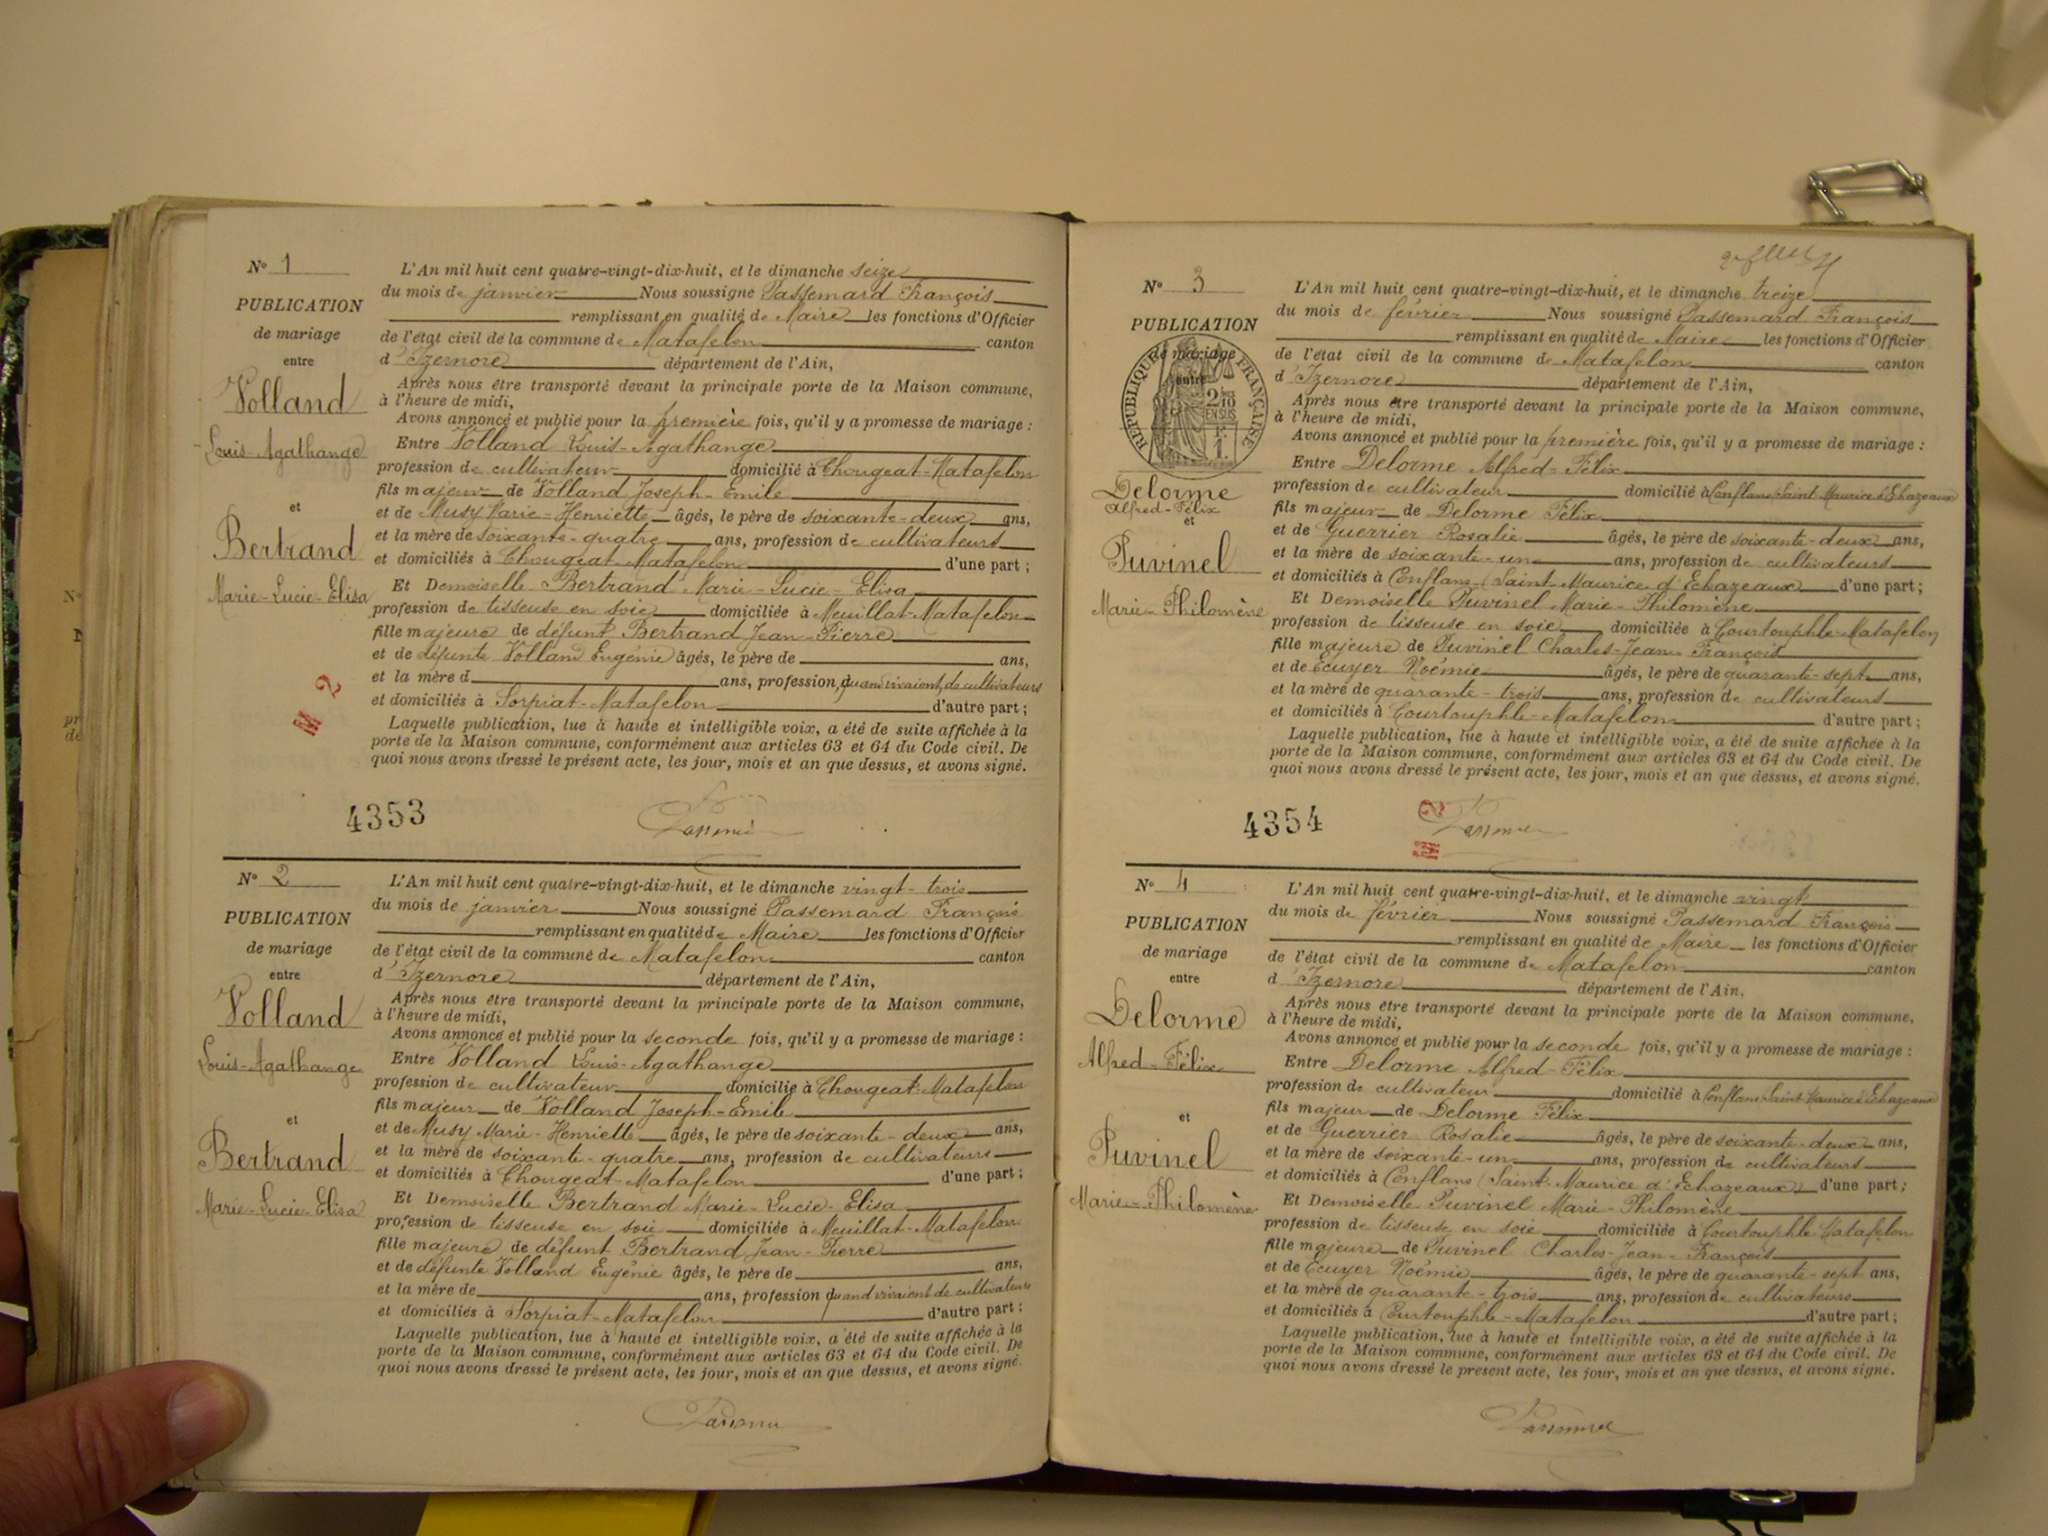 N° 1
PUBLICATION
de mariage
entre
Volland
Louis-Agathange
et
Bertrand
Marie-Lucie-Elisa
L'An mil huit cent quatre-vingt-dix-huit, et le dimanche seize
du mois de janvier Nous soussigné Passemard François
remplissant en qualité de Maire les fonctions d'Officier
de l'état civil de la commune de Matafelon canton
d'Izernore département de l'Ain,
Après nous être transporté devant la principale porte de la Maison commune,
à l'heure de midi,
Avons annoncé et publié pour la première fois, qu'il y a promesse de mariage :
Entre Volland Louis-Agathange
profession de cultivateur domicilié à Chougeat-Matafelon
fils majeur de Volland Joseph-Emile
et de Musy Marie-Henriette âgés, le père de soixante-deux ans,
et la mère de soixante-quatre ans, profession de cultivateurs
et domiciliés à Chougeat-Matafelon d'une part ;
Et Demoiselle Bertrand Marie-Lucie-Elisa
profession de tisseuse en soie domiciliée à Meuillat-Matafelon
fille majeure de défunt Bertrand Jean-Pierre
et de défunte Volland Eugénie âgés, le père de ans,
et la mère d ans, profession, quand vivaient, de cultivateurs
et domiciliés à Sorpiat-Matafelon d'autre part ;
Laquelle publication, lue à haute et intelligible voix, a été de suite affichée à la
porte de la Maison commune, conformément aux articles 63 et 64 du Code civil. De
quoi nous avons dressé le présent acte, les jour, mois et an que dessus, et avons signé.
M 2
4353
N° 2
PUBLICATION
de mariage
entre
Volland
Louis-Agathange
et
Bertrand
Marie-Lucie-Elisa
L'An mil huit cent quatre-vingt-dix-huit, et le dimanche vingt-trois
du mois de janvier Nous soussigné Passemard François
remplissant en qualité de Maire les fonctions d'Officier
de l'état civil de la commune de Matafelon canton
d'Izernore département de l'Ain,
Après nous être transporté devant la principale porte de la Maison commune,
à l'heure de midi,
Avons annoncé et publié pour la seconde fois, qu'il y a promesse de mariage :
Entre Volland Louis-Agathange
profession de cultivateur domicilié à Chougeat-Matafelon
fils majeur de Volland Joseph-Emile
et de Musy Marie-Henriette âgés, le père de soixante-deux ans,
et la mère de soixante-quatre ans, profession de cultivateurs
et domiciliés à Chougeat-Matafelon d'une part ;
Et Demoiselle Bertrand Marie-Lucie-Elisa
profession de tisseuse en soie domiciliée à Meuillat-Matafelon
fille majeure de défunt Bertrand Jean-Pierre
et de défunte Volland Eugénie âgés, le père de ans,
et la mère de ans, profession quand vivaient de cultivateurs
et domiciliés à Sorpiat-Matafelon d'autre part ;
Laquelle publication, lue à haute et intelligible voix, a été de suite affichée à la
porte de la Maison commune, conformément aux articles 63 et 64 du Code civil. De
quoi nous avons dressé le présent acte, les jour, mois et an que dessus, et avons signé.
N° 3
PUBLICATION
de mariage
entre
RÉPUBLIQUE FRANÇAISE
Delorme
Alfred-Félix
et
Puvinel
Marie-Philomène
L'An mil huit cent quatre-vingt-dix-huit, et le dimanche treize
du mois de février Nous soussigné Passemard François
remplissant en qualité de Maire les fonctions d'Officier
de l'état civil de la commune de Matafelon canton
d'Izernore département de l'Ain,
Après nous être transporté devant la principale porte de la Maison commune,
à l'heure de midi,
Avons annoncé et publié pour la première fois, qu'il y a promesse de mariage :
Entre Delorme Alfred-Félix
profession de cultivateur domicilié à Conflans Saint Maurice d'Echazeaux
fils majeur de Delorme Félix
et de Guerrier Rosalie âgés, le père de soixante-deux ans,
et la mère de soixante-un ans, profession de cultivateurs
et domiciliés à Conflans (Saint Maurice d'Echazeaux) d'une part ;
Et Demoiselle Puvinel Marie-Philomène
profession de tisseuse en soie domiciliée à Courtouphle-Matafelon
fille majeure de Puvinel Charles-Jean-François
et de Ecuyer Noémie âgés, le père de quarante-sept ans,
et la mère de quarante-trois ans, profession de cultivateurs
et domiciliés à Courtouphle-Matafelon d'autre part ;
Laquelle publication, lue à haute et intelligible voix, a été de suite affichée à la
porte de la Maison commune, conformément aux articles 63 et 64 du Code civil. De
quoi nous avons dressé le présent acte, les jour, mois et an que dessus, et avons signé.
4354
M 2
N° 4
PUBLICATION
de mariage
entre
Delorme
Alfred-Félix
et
Puvinel
Marie-Philomène
L'An mil huit cent quatre-vingt-dix-huit, et le dimanche vingt
du mois de février Nous soussigné Passemard François
remplissant en qualité de Maire les fonctions d'Officier
de l'état civil de la commune de Matafelon canton
d'Izernore département de l'Ain,
Après nous être transporté devant la principale porte de la Maison commune,
à l'heure de midi,
Avons annoncé et publié pour la seconde fois, qu'il y a promesse de mariage :
Entre Delorme Alfred-Félix
profession de cultivateur domicilié à Conflans Saint Maurice d'Echazeaux
fils majeur de Delorme Félix
et de Guerrier Rosalie âgés, le père de soixante-deux ans,
et la mère de soixante-un ans, profession de cultivateurs
et domiciliés à Conflans (Saint Maurice d'Echazeaux) d'une part ;
Et Demoiselle Puvinel Marie-Philomène
profession de tisseuse en soie domiciliée à Courtouphle Matafelon
fille majeure de Puvinel Charles-Jean-François
et de Ecuyer Noémie âgés, le père de quarante-sept ans,
et la mère de quarante-trois ans, profession de cultivateurs
et domiciliés à Courtouphle-Matafelon d'autre part ;
Laquelle publication, lue à haute et intelligible voix, a été de suite affichée à la
porte de la Maison commune, conformément aux articles 63 et 64 du Code civil. De
quoi nous avons dressé le présent acte, les jour, mois et an que dessus, et avons signé.